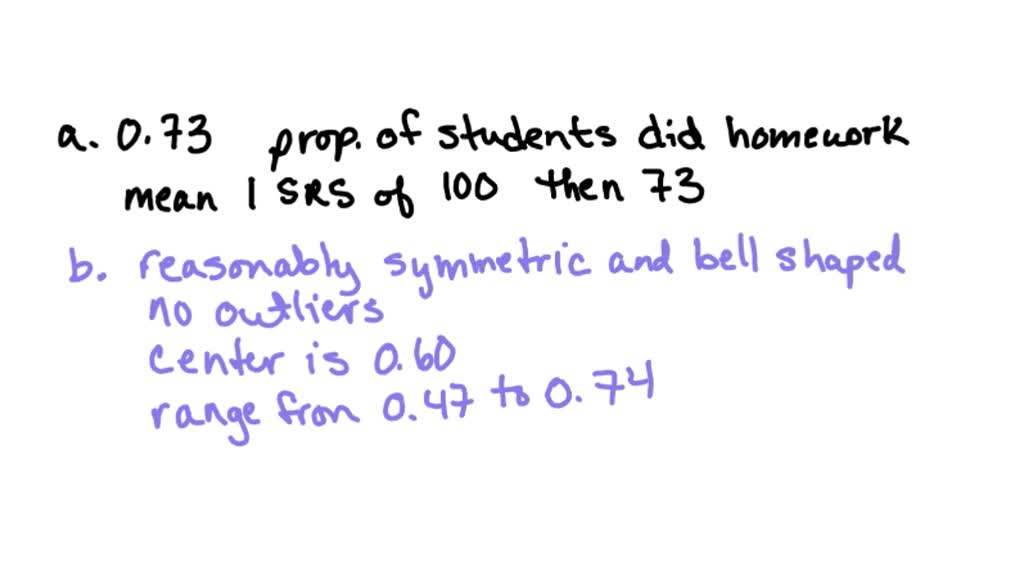 a. 0.73 prop. of students did homework
mean 1 SRS of 100 then 73
b. reasonably symmetric and bell shaped
no outliers
center is 0.60
range from 0.47 to 0.74